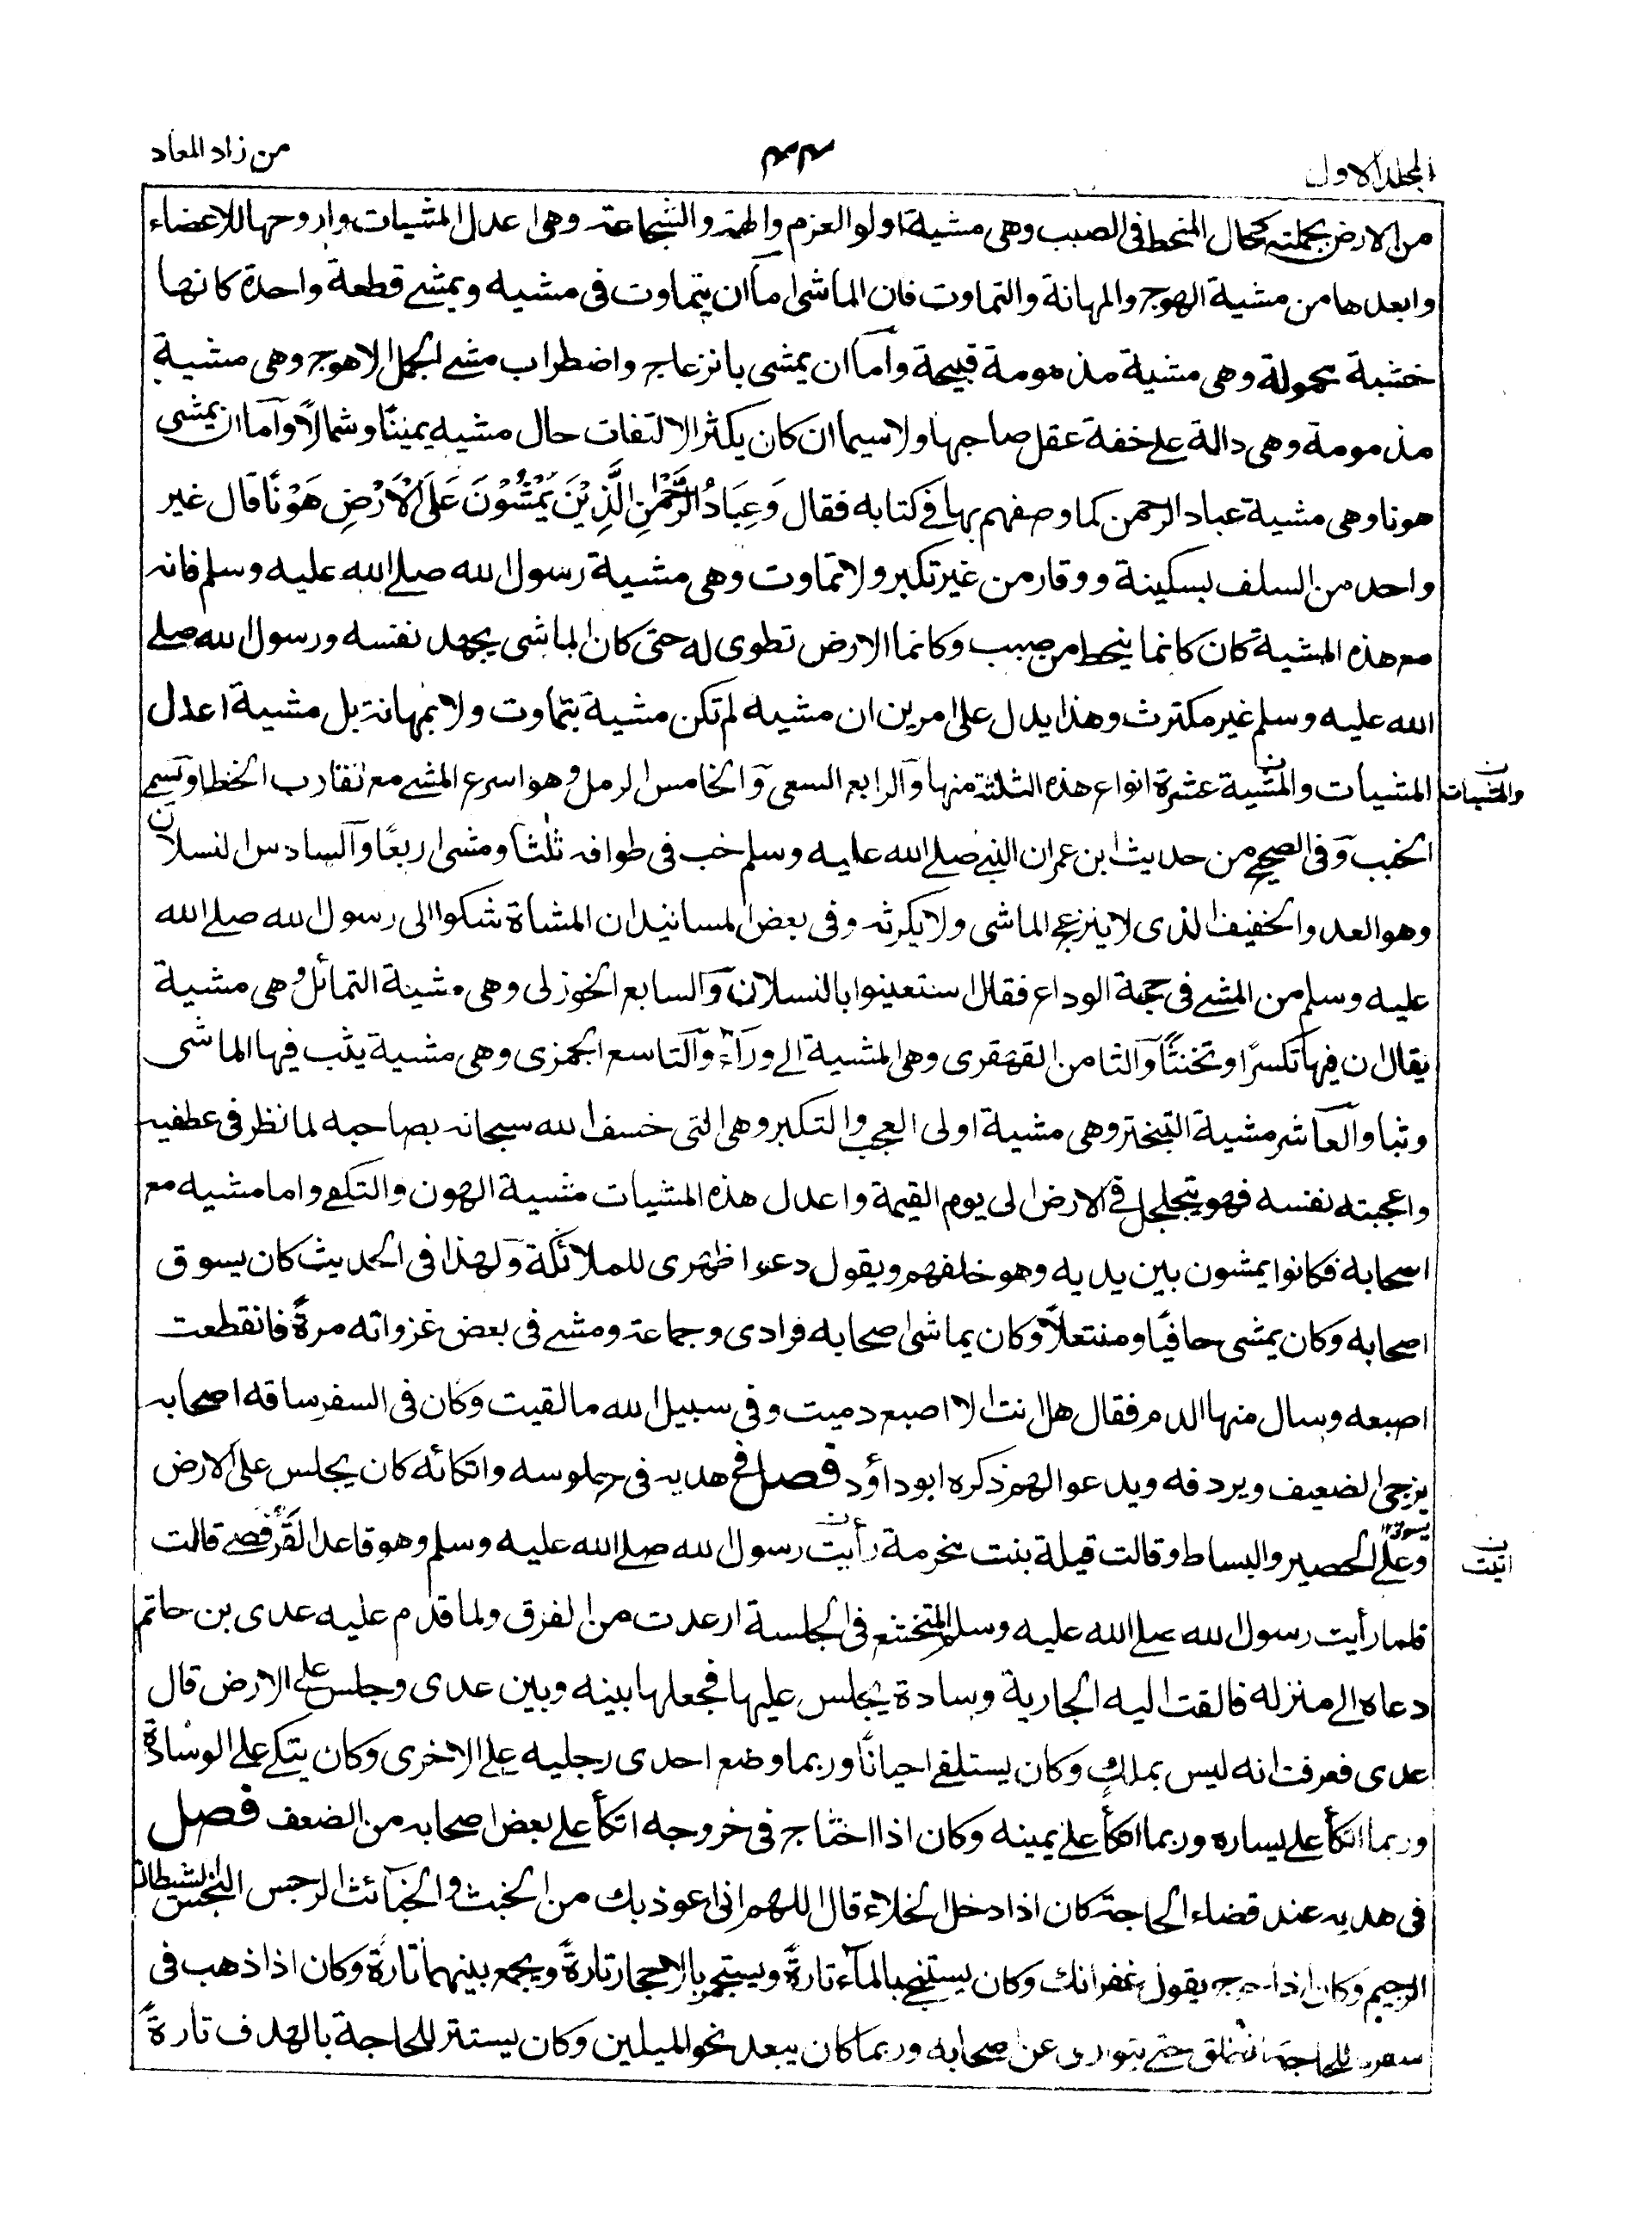 المجلد الاول
۴۴
من زاد المعاد
من الارض بجملته كحال المنحط فى الصبب وهى مشية اولو العزم والهمة والشجاعة وهى اعدل المشيات واروحها للاعضاء
وابعدها من مشية الهوج والمهانة والتماوت فان الماشى اما ان يتماوت فى مشيه ويمشے قطعة واحدة كانها
خشبة محمولة وهى مشية مذمومة قبيحة واما ان يمشى بانزعاج واضطراب مشے الجمل الاهوج وهى مشية
مذمومة وهى دالة علے خفة عقل صاحبها ولاسيما ان كان يكثر الالتفات حال مشيه يمينًا وشمالًا وآما ان يمشى
هونا وهى مشية عباد الرحمن كما وصفهم بها فے كتابه فقال وَعِبَادُ الرَّحْمٰنِ الَّذِيْنَ يَمْشُوْنَ عَلَى الْاَرْضِ هَوْنًا قال غير
واحد من السلف بسكينة ووقار من غير تكبر ولا تماوت وهى مشية رسول الله صلے الله عليه وسلم فانه
مع هذه المشية كان كانما ينحط من صبب وكانما الارض تطوى له حتى كان الماشى يجهد نفسه ورسول الله صلے
الله عليه وسلم غير مكترث وهذا يدل على امرين ان مشيه لم تكن مشية بتماوت ولا بمهانة بل مشية اعدل
المشيات والمشية عشرة انواع هذه الثلثة منها وآلرابع السعى وآلخامس الرمل وهو اسرع المشے مع تقارب الخطا وتسمے
والمشيات
الخبب وفى الصحيح من حديث ابن عمر ان النبے صلے الله عليه وسلم خب فى طوافه ثلٰثا ومشى اربعًا وآلسادس النسلان
وهو العد والخفيف الذى لا ينزعج الماشى ولا يكرثه وفى بعض المسانيد ان المشاة شكوا الى رسول الله صلے الله
عليه وسلم من المشے فى حجة الوداع فقال استعينوا بالنسلان وآلسابع الخوزلى وهى مشية التمائل وهى مشية
يقال ان فيها تكسرًا وتخنثًا وآلثامن القهقرى وهى المشية الے ورآء وآلتاسع الجمزى وهى مشية يثب فيها الماشى
وثبا وآلعاشر مشية التبختر وهى مشية اولى العجب والتكبر وهى التى خسف الله سبحانه بصاحبه لما نظر فى عطفيه
واعجبته نفسه فهو يتجلجل فے الارض الى يوم القيمة واعدل هذه المشيات مشية الهون والتكفے واما مشيه مع
اصحابه فكانوا يمشون بين يديه وهو خلفهم ويقول دعوا ظهرى للملائكة ولهذا فى الحديث كان يسوق
اصحابه وكان يمشى حافيًا ومنتعلًا وكان يماشى اصحابه فرادى وجماعة ومشے فى بعض غزواته مرةً فانقطعت
اصبعه وسال منها الدم فقال هل انت الا اصبع دميت وفى سبيل الله ما لقيت وكان فى السفر ساقه اصحابه
يزجى الضعيف ويردفه ويدعو الهم ذكره ابوداؤد فصل فے هديه فى جلوسه واتكائه كان يجلس على الارض
يسوق
وعلے الحصير والبساط وقالت قيلة بنت مخرمة رأيت رسول الله صلے الله عليه وسلم وهو قاعد القرفصے قالت
اتيت
فلما رأيت رسول الله صلے الله عليه وسلم المتخشع فى الجلسة ارعدت من الفرق ولما قدم عليه عدى بن حاتم
دعاه الے منزله فالقت اليه الجارية وسادة يجلس عليها فجعلها بينه وبين عدى وجلس علے الارض قال
عدى فعرفت انه ليس بملك وكان يستلقے احيانًا وربما وضع احدى رجليه علے الاخرى وكان يتكے علے الوسادة
وربما اتكأ علے يساره وربما اتكأ علے يمينه وكان اذا احتاج فى خروجه اتكأ علے بعض اصحابه من الضعف فصل
فى هديه عند قضاء الحاجة كان اذا دخل الخلاء قال اللهم انى اعوذ بك من الخبث والخبآئث الرجس النجس الشيطان
الرجيم وكان اذا خرج يقول غفرانك وكان يستنجے بالمآء تارةً ويستجمر بالاحجار تارةً ويجمع بينهما تارةً وكان اذا ذهب فى
سفره للحاجة انطلق حتے يتوارى عن اصحابه وربما كان يبعد نحو الميلين وكان يستتر للحاجة بالهدف تارةً